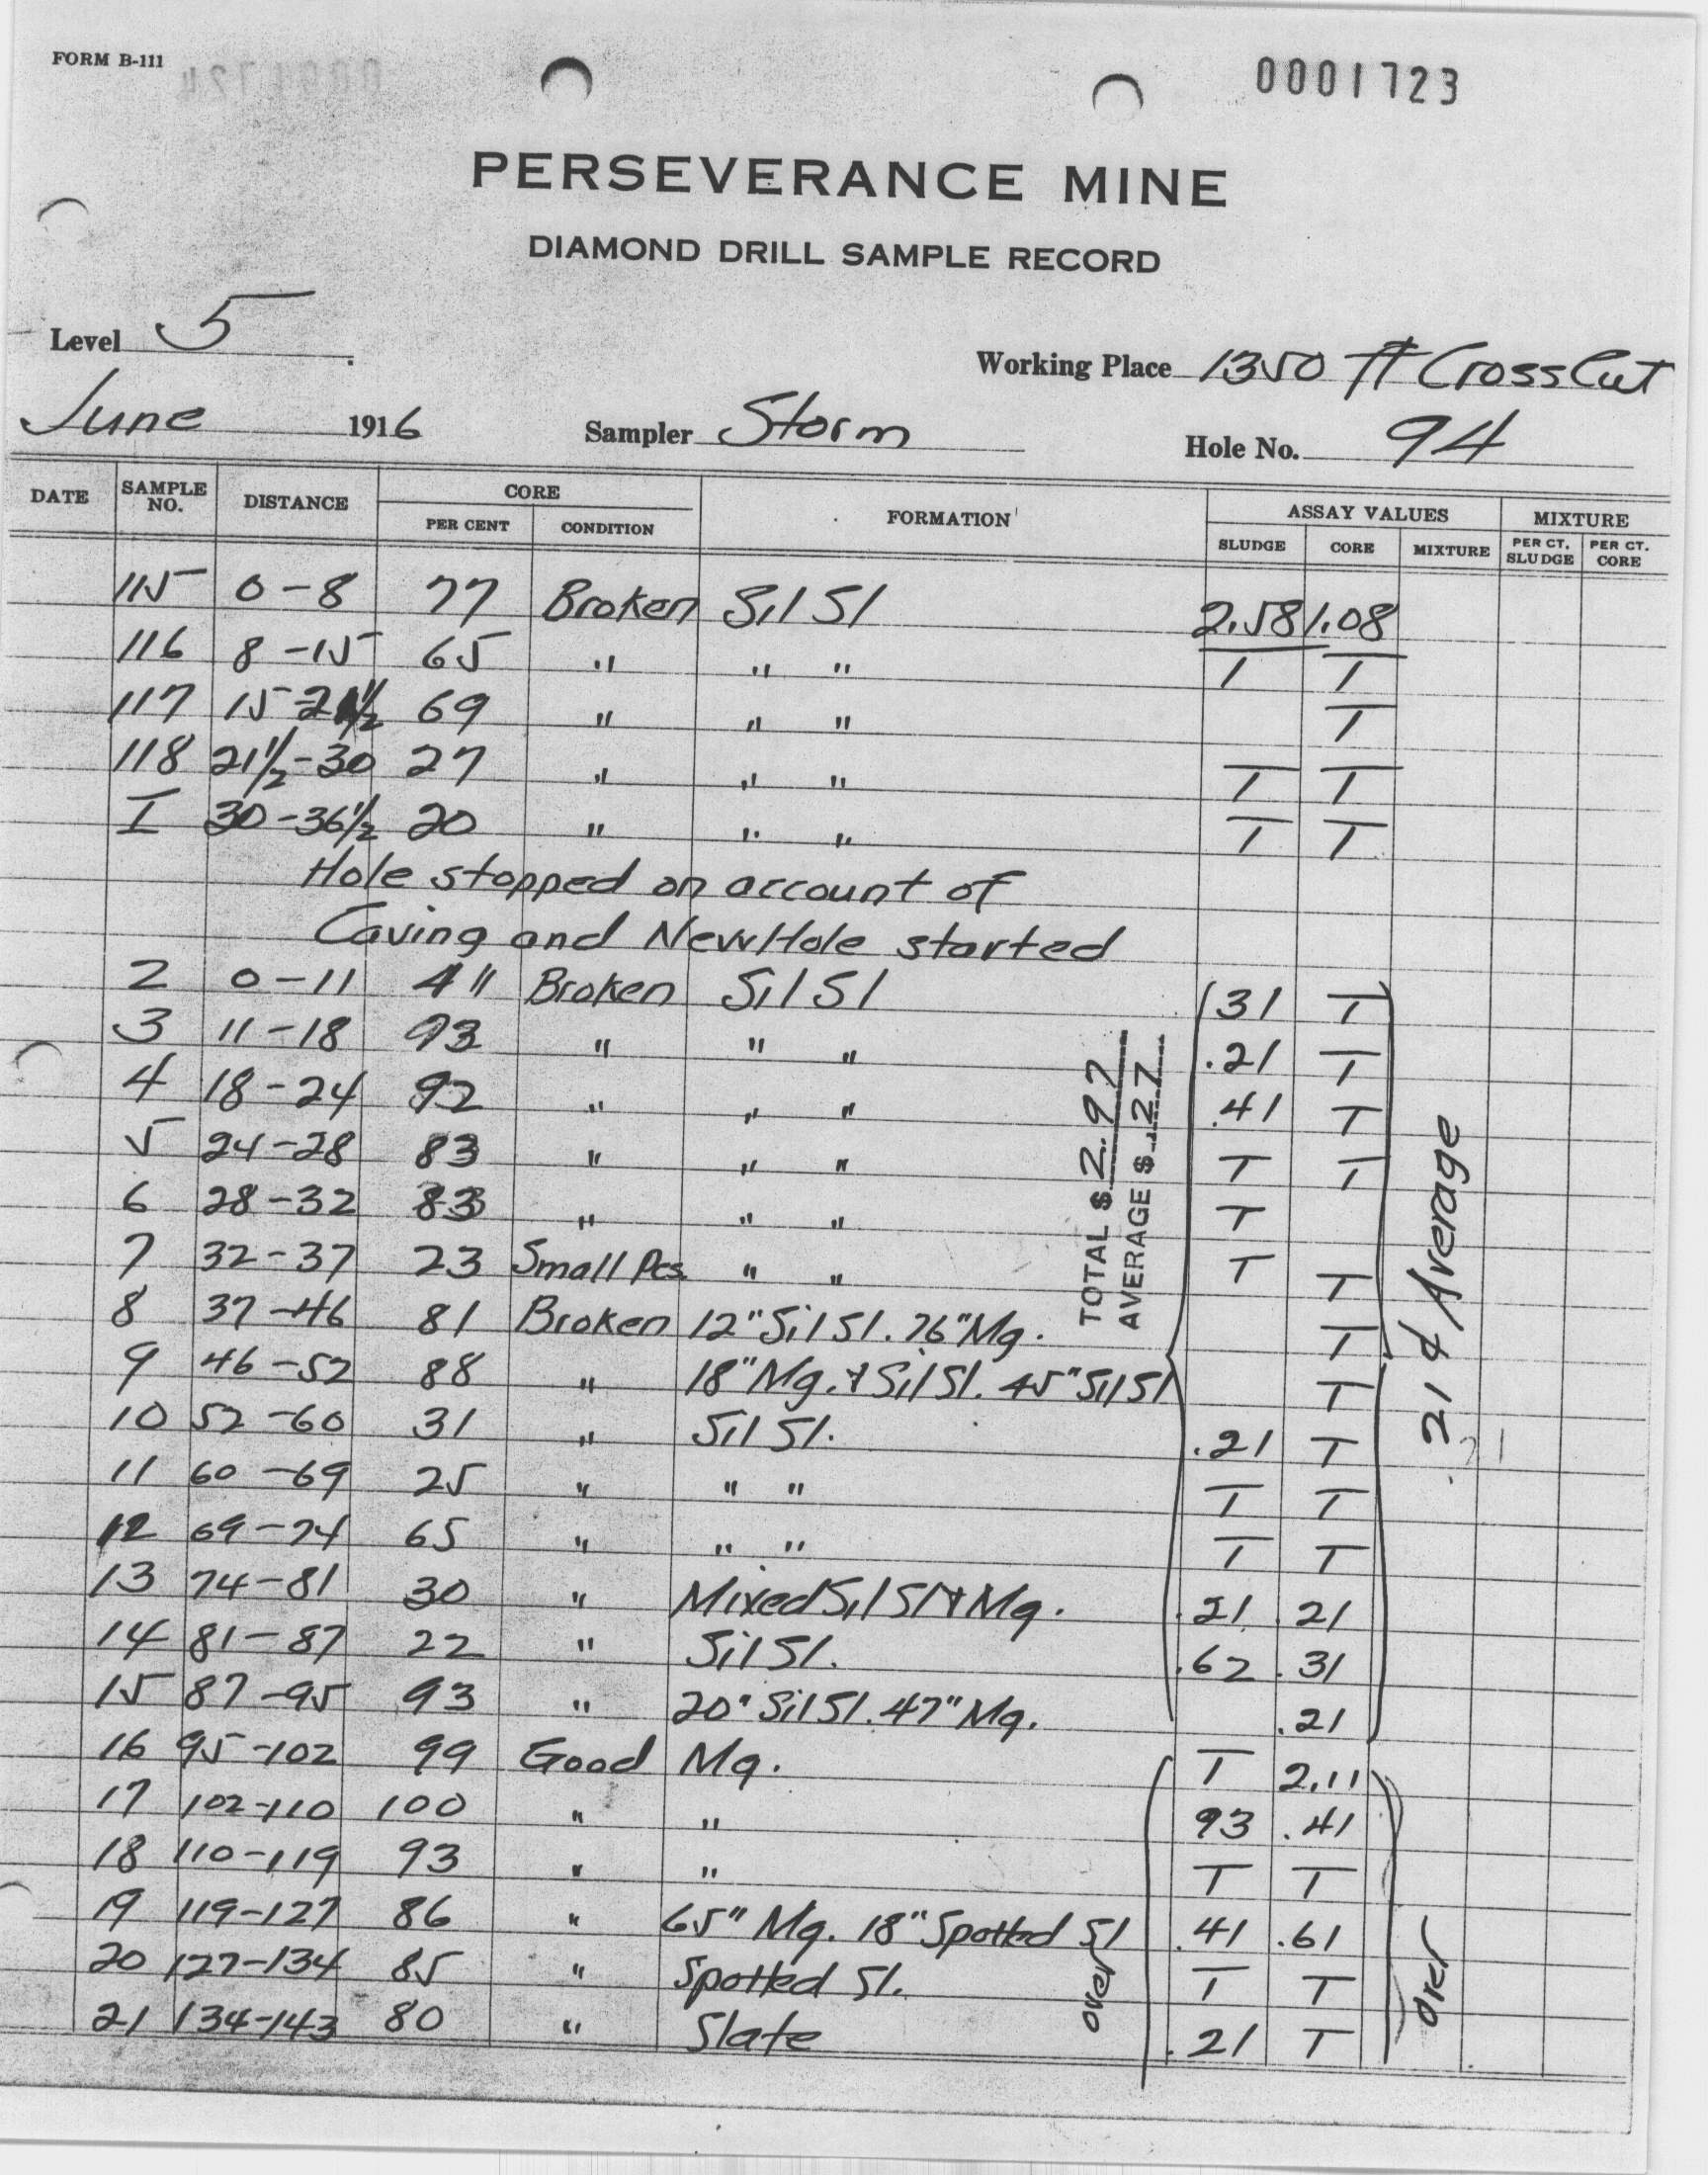 FORM B-111
0001723
PERSEVERANCE MINE
DIAMOND DRILL SAMPLE RECORD
Level 5
Working Place 1350 ft Cross Cut
June 1916 Sampler Storm Hole No. 94
DATE SAMPLE NO. DISTANCE CORE PER CENT CONDITION FORMATION ASSAY VALUES SLUDGE CORE MIXTURE MIXTURE PER CT. SLUDGE PER CT. CORE
115 0-8 77 Broken Sil Sl 2.58 1.08
116 8-15 65 " " " T T
117 15-21½ 69 " " " T
118 21½-30 27 " " " T T
I 30-36½ 20 " " " T T
Hole stopped on account of
Caving and New Hole started
2 0-11 4" Broken Sil Sl 31 T
3 11-18 93 " " " .21 T
4 18-24 92 " " " .41 T
5 24-28 83 " " " T T
6 28-32 83 " " " T
7 32-37 23 Small Pcs. " " T T
8 37-46 81 Broken 12" Sil Sl. 76" Mg. T
9 46-52 88 " 18" Mg. & Sil Sl. 45" Sil Sl T
10 52-60 31 " Sil Sl. .21 T
11 60-69 25 " " " T T
12 69-74 65 " " " T T
13 74-81 30 " Mixed Sil Sl & Mg. .21 .21
14 81-87 22 " Sil Sl. .62 .31
15 87-95 93 " 20" Sil Sl. 47" Mg. .21
16 95-102 99 Good Mg. T 2.11
17 102-110 100 " " 93 .41
18 110-119 93 " " T T
19 119-127 86 " 65" Mg. 18" Spotted Sl .41 .61
20 127-134 85 " Spotted Sl. T T
21 134-143 80 " Slate .21 T
TOTAL $ 2.97
AVERAGE $ .27
.21 ¢ Average
.21
over
over